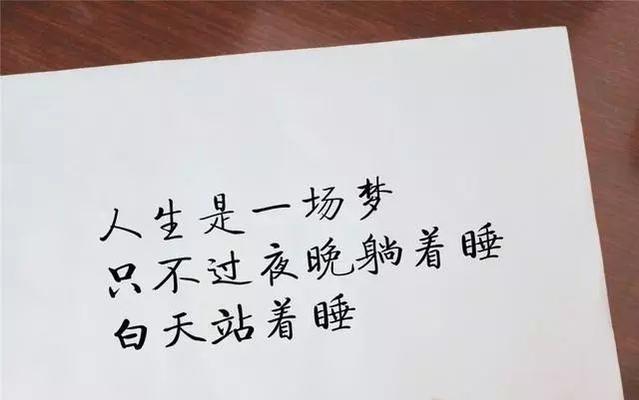 人生是一场梦
只不过夜晚躺着睡
白天站着睡